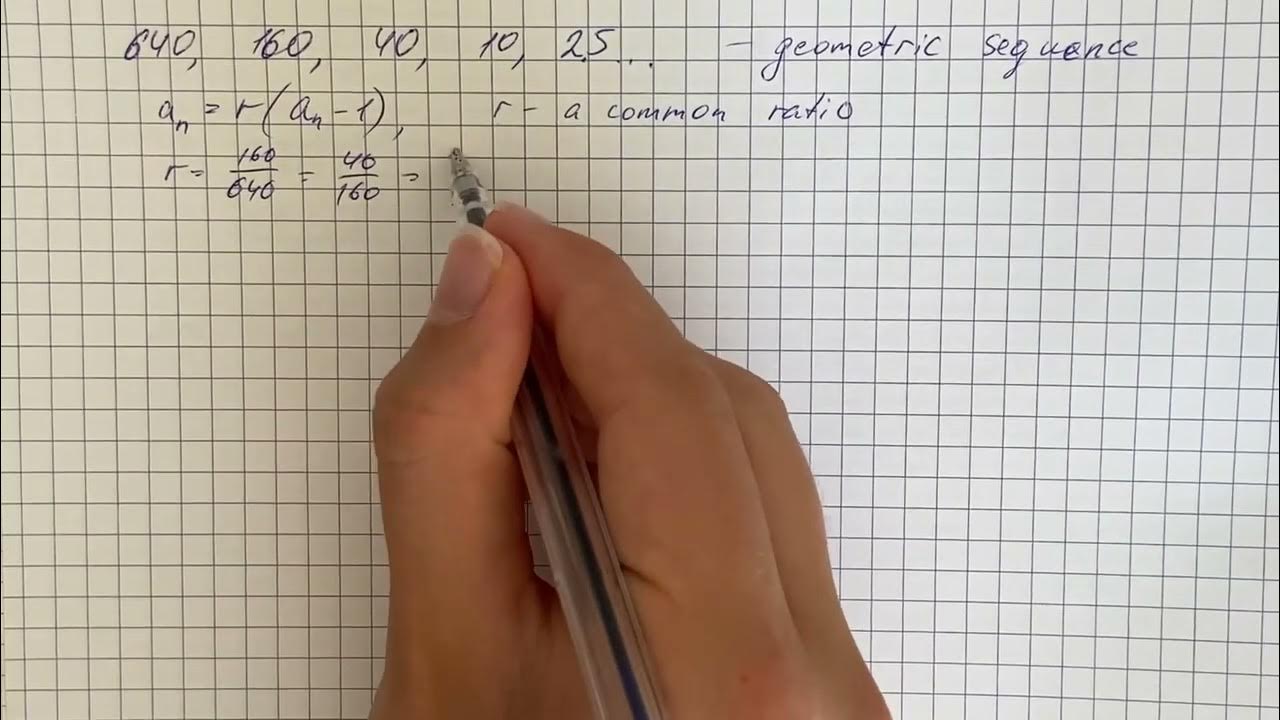 640, 160, 40, 10, 2.5... - geometric sequence
aₙ = r(aₙ - 1), r - a common ratio
r = 160/640 = 40/160 =